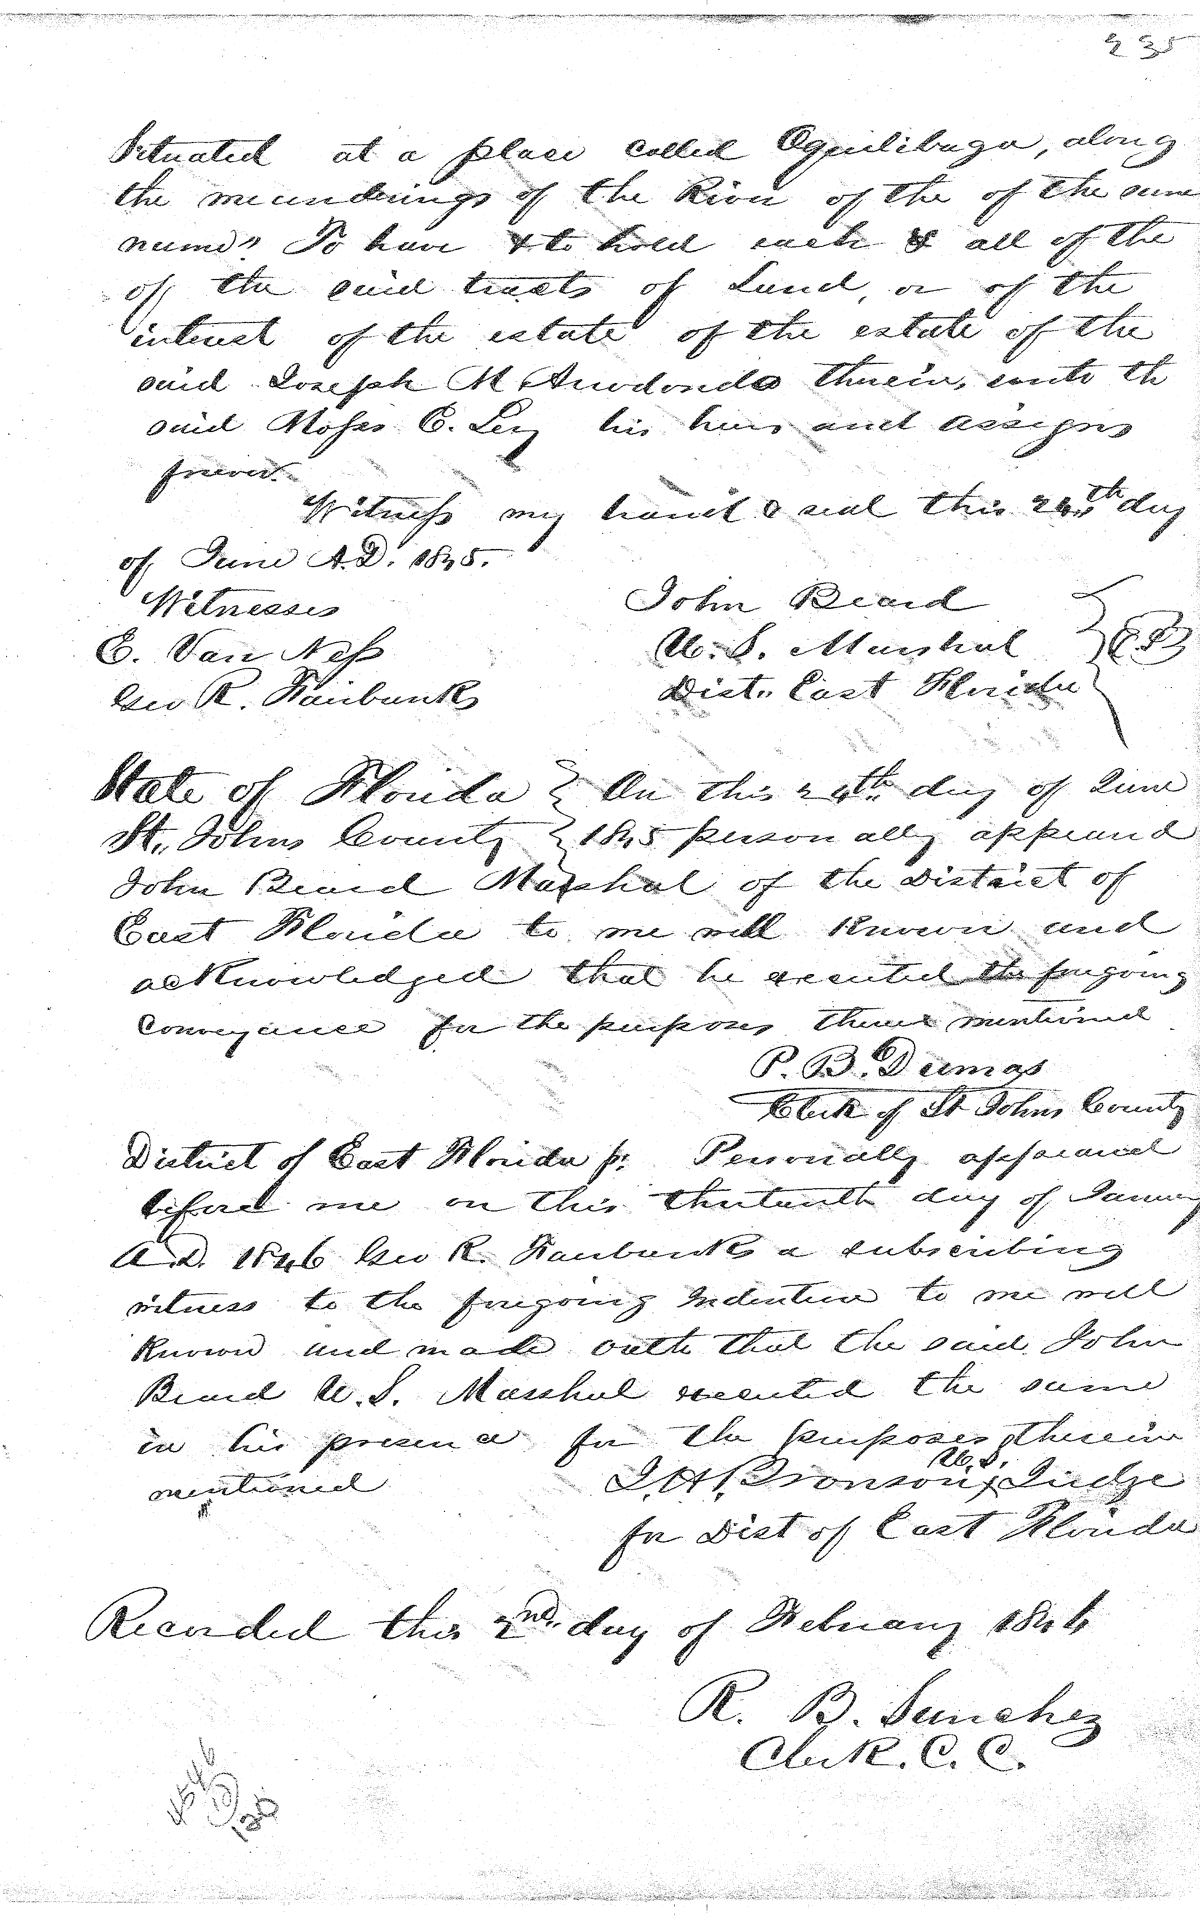 235
Situated at a place called Oquilibaga, along
the meanderings of the River of the of the same
name" To have & to hold each & all of the
of the said tracts of Land, or of the
interest of the estate of the estate of the
said Joseph M Arrodondo therein, unto th
said Moses E. Levy his heirs and assigns
forever.
Witness my hand & seal this 24th day
of June A.D. 1845.
Witnesses
John Beard
E. Van Ness
U. S. Marshal
Geo R. Fairbanks
Dist. East Florida
State of Florida } On this 24th day of June
St. Johns County } 1845 personally appeared
John Beard Marshal of the District of
East Florida to me well Known and
acknowledged that he executed the foregoing
conveyance for the purposes therein mentioned
P. B. Dumas
Clerk of St Johns County
District of East Florida Personally appeared
before me on this thirteenth day of January
A.D. 1846 Geo R. Fairbanks a subscribing
witness to the foregoing Indenture to me well
Known and made oath that the said John
Beard U. S. Marshal executed the same
in his presence for the purposes therein
mentioned
I. H. Bronson, U.S. Judge
for Dist of East Florida
Recorded this 2nd day of February 1846
R. B. Sanchez
Clerk. C. C.